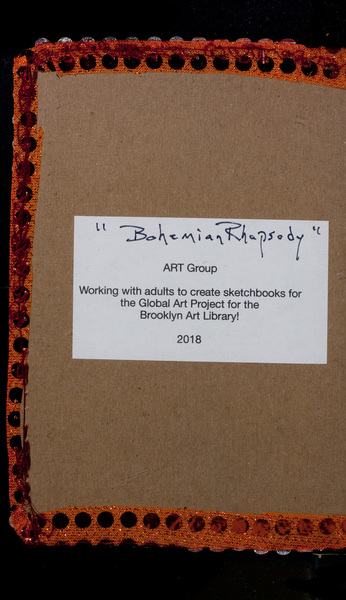 "Bohemian Rhapsody"
ART Group
Working with adults to create sketchbooks for
the Global Art Project for the
Brooklyn Art Library!
2018